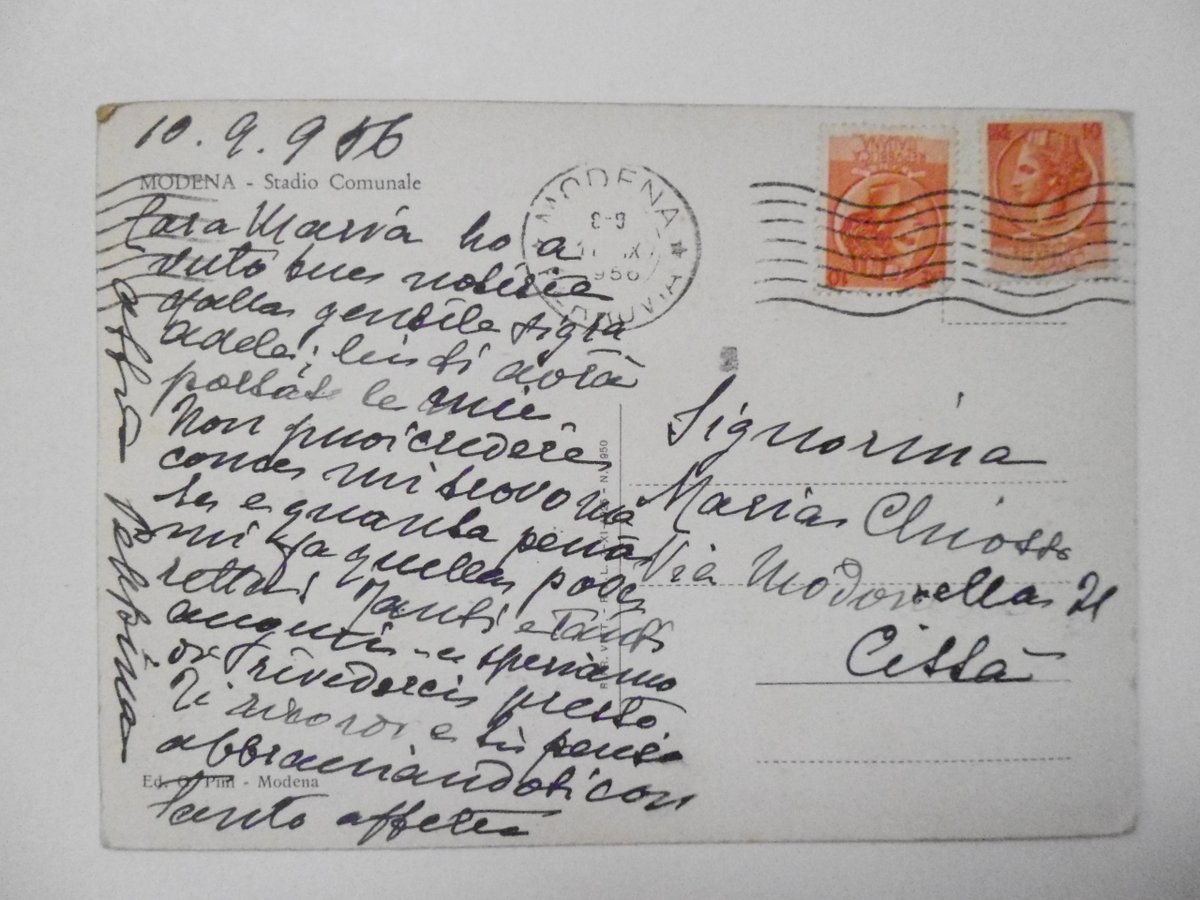 10.9.956
MODENA - Stadio Comunale
Cara Maria ho a
vuto tue notizie
dalla gentile sig.ra
Adele; lei ti avrà
portate le mie
Non puoi credere
come mi trovo ma
le e quanta pena
mi fa quella pove
retta! Tanti e tanti
auguri e speriamo
di rivederci presto
Ti ricordo e ti penso
abbracciandoti con
tanto affetto
Ed. G. Pini - Modena
MODENA
8-9
IX
1956
10
10
Signorina
Maria Chiossi
Via Modonella 21
Città